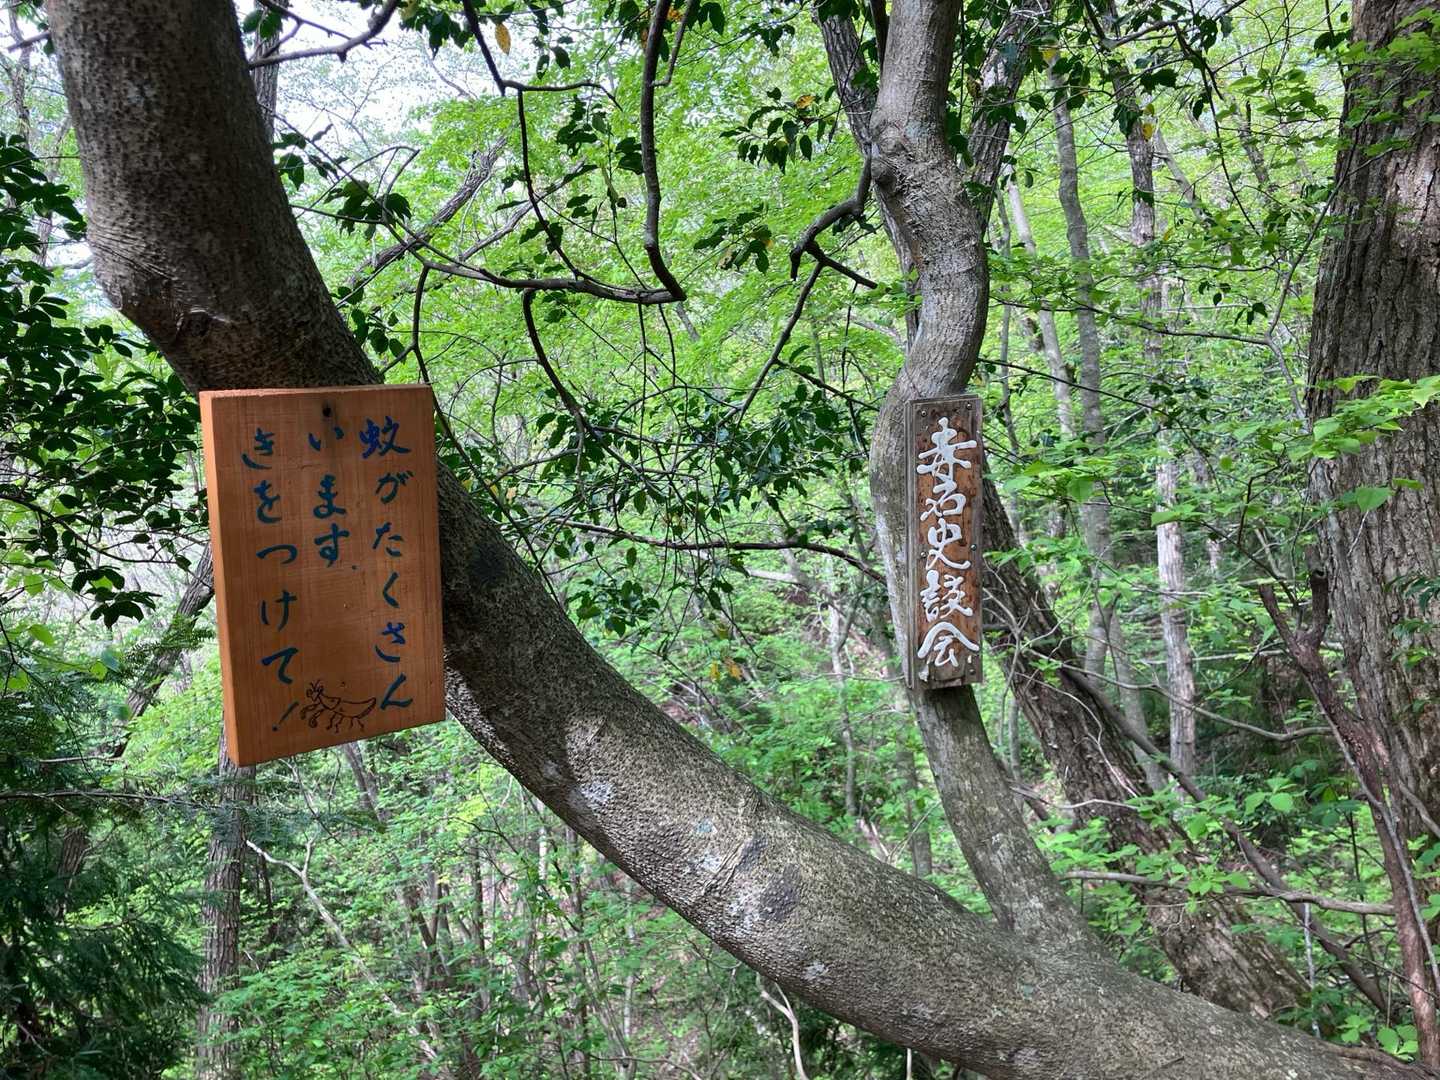 蚊がたくさん
います.
きをつけて!
赤名史談会